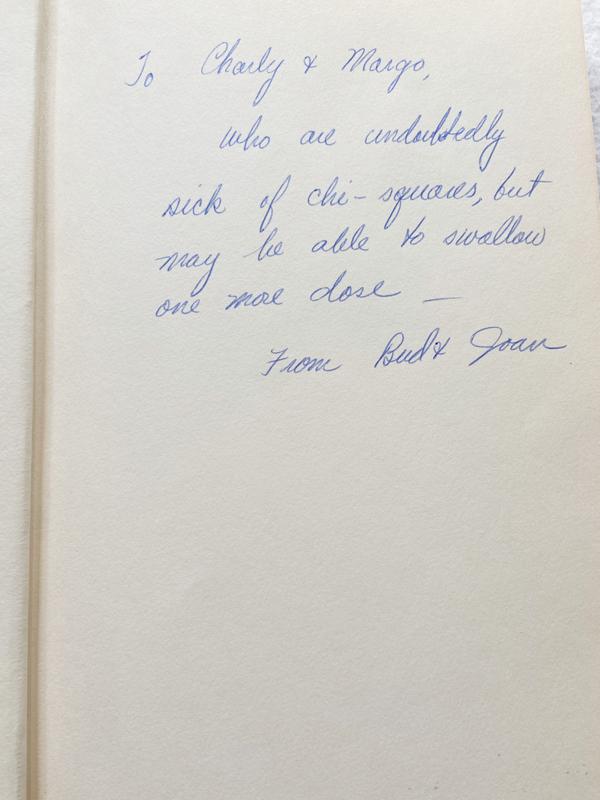 To Charly & Margo,
who are undoubtedly
sick of chi-squares, but
may be able to swallow
one more dose —
From Bud & Joan